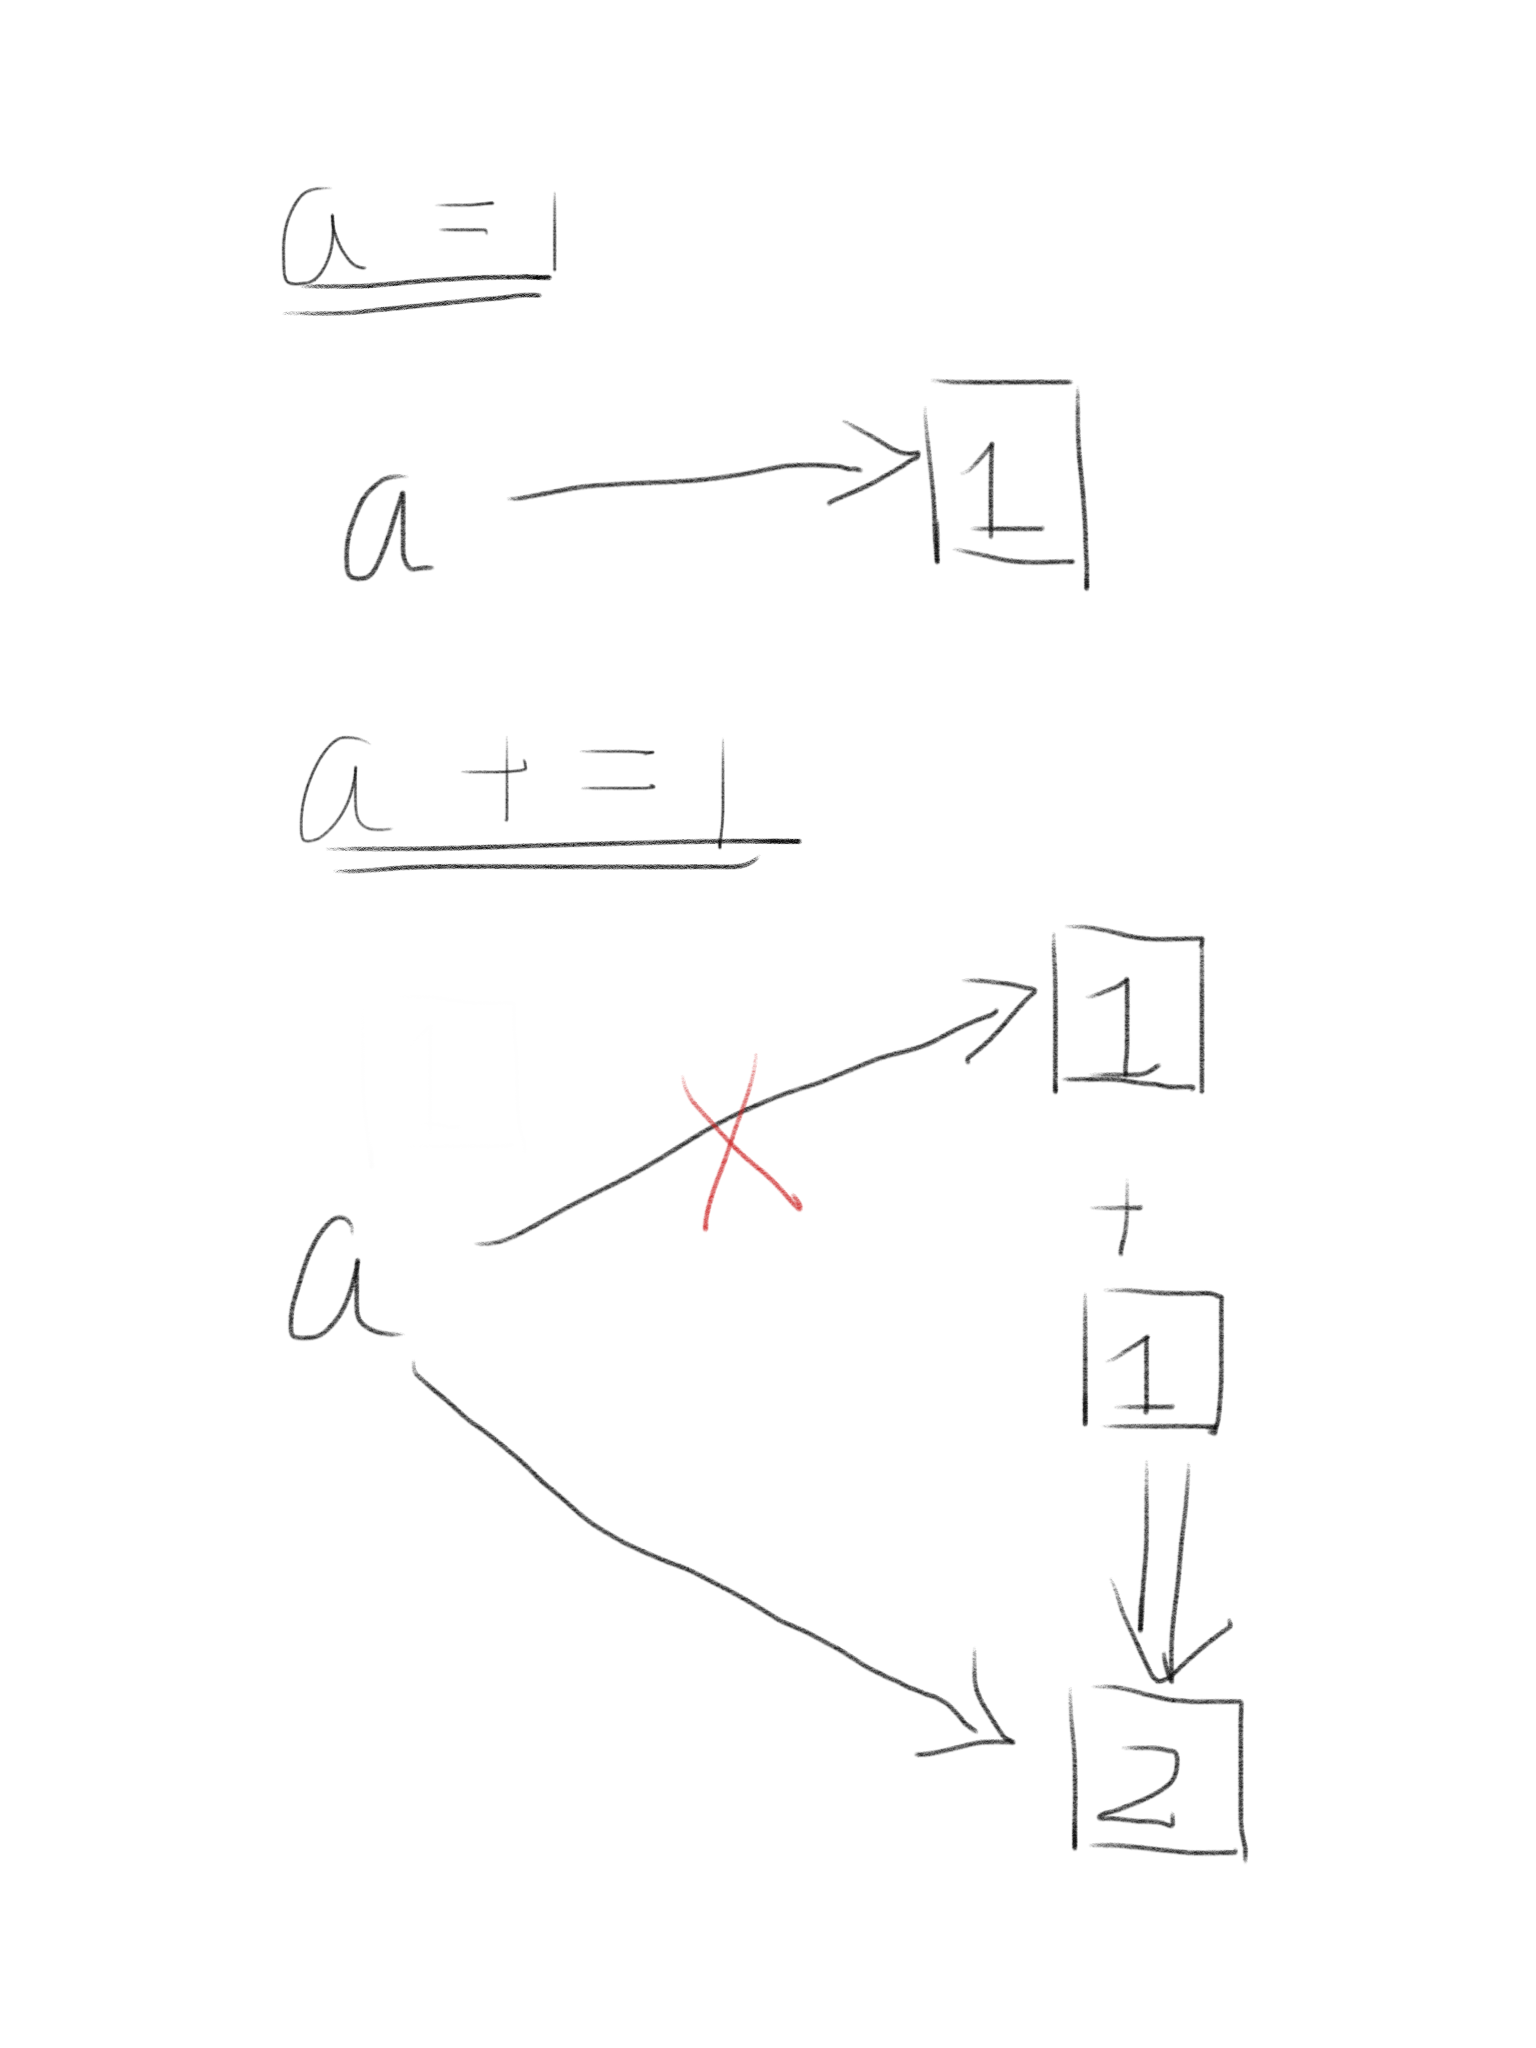 a = 1
a
1
a += 1
1
+
a
1
2